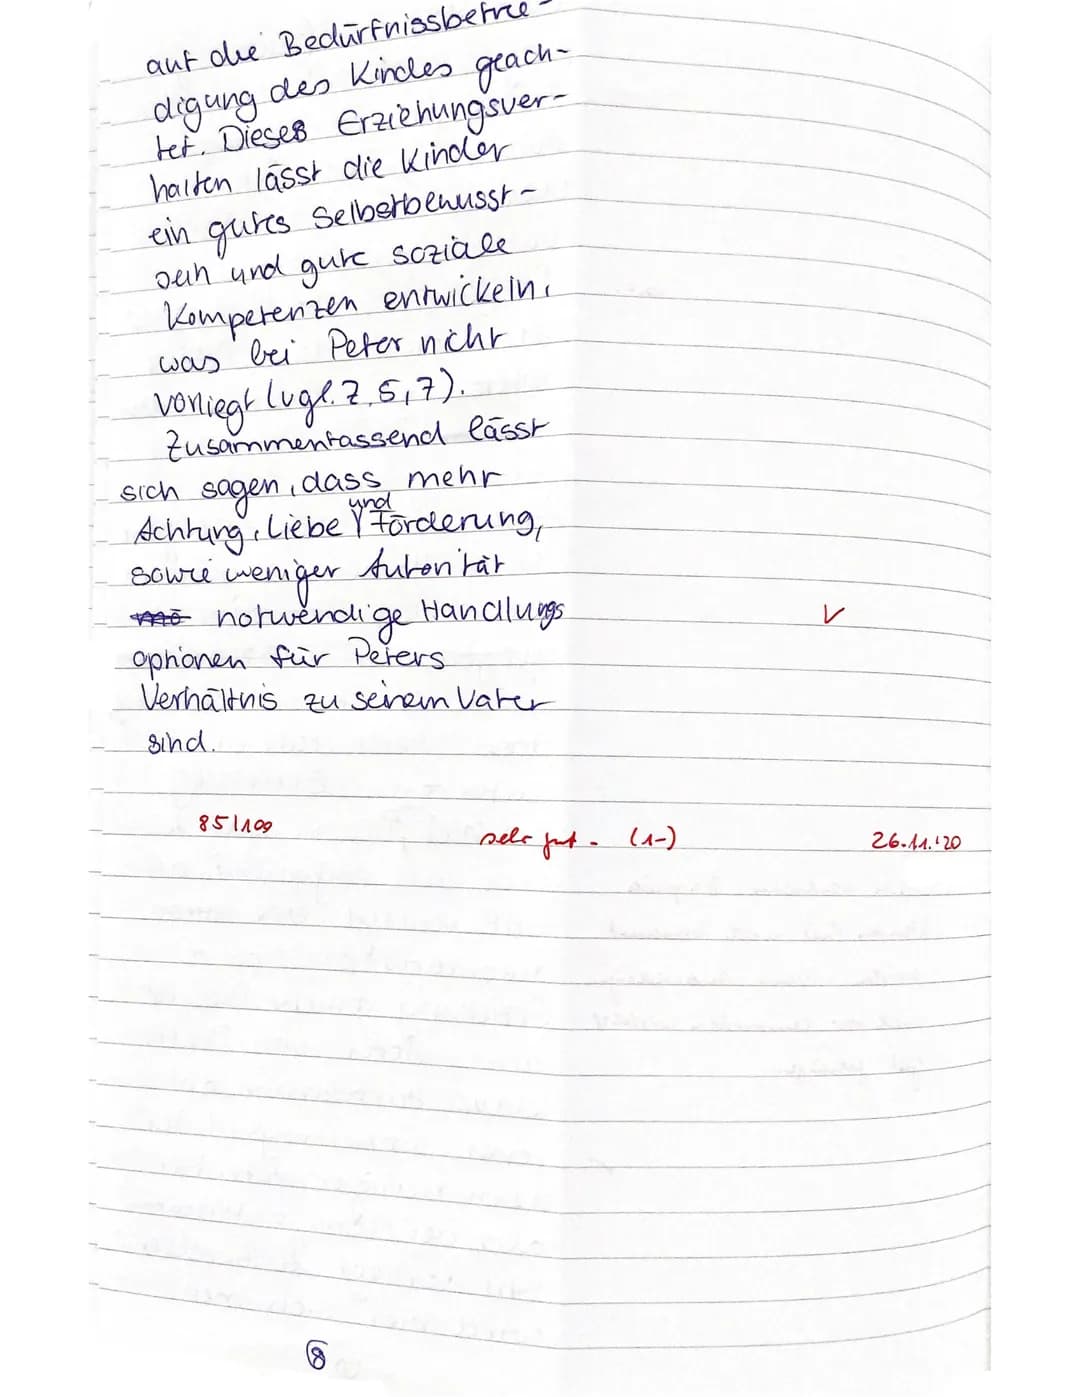 auf die Bedürfnissbefrie-
digung des Kindes geach-
tet. Dieses Erziehungsver-
halten lässt die Kinder
ein gutes Selbstbewusst-
sein und gute soziale
Kompetenzen entwickeln,
was bei Peter nicht
vorliegt (vgl. Z. 5, 7).
Zusammenfassend lässt
sich sagen, dass mehr
Achtung, Liebe und Förderung,
sowie weniger Autorität
notwendige Handlungs
optionen für Peters
Verhältnis zu seinem Vater
sind.
85/100 sehr gut - (1-) 26.11.'20
8